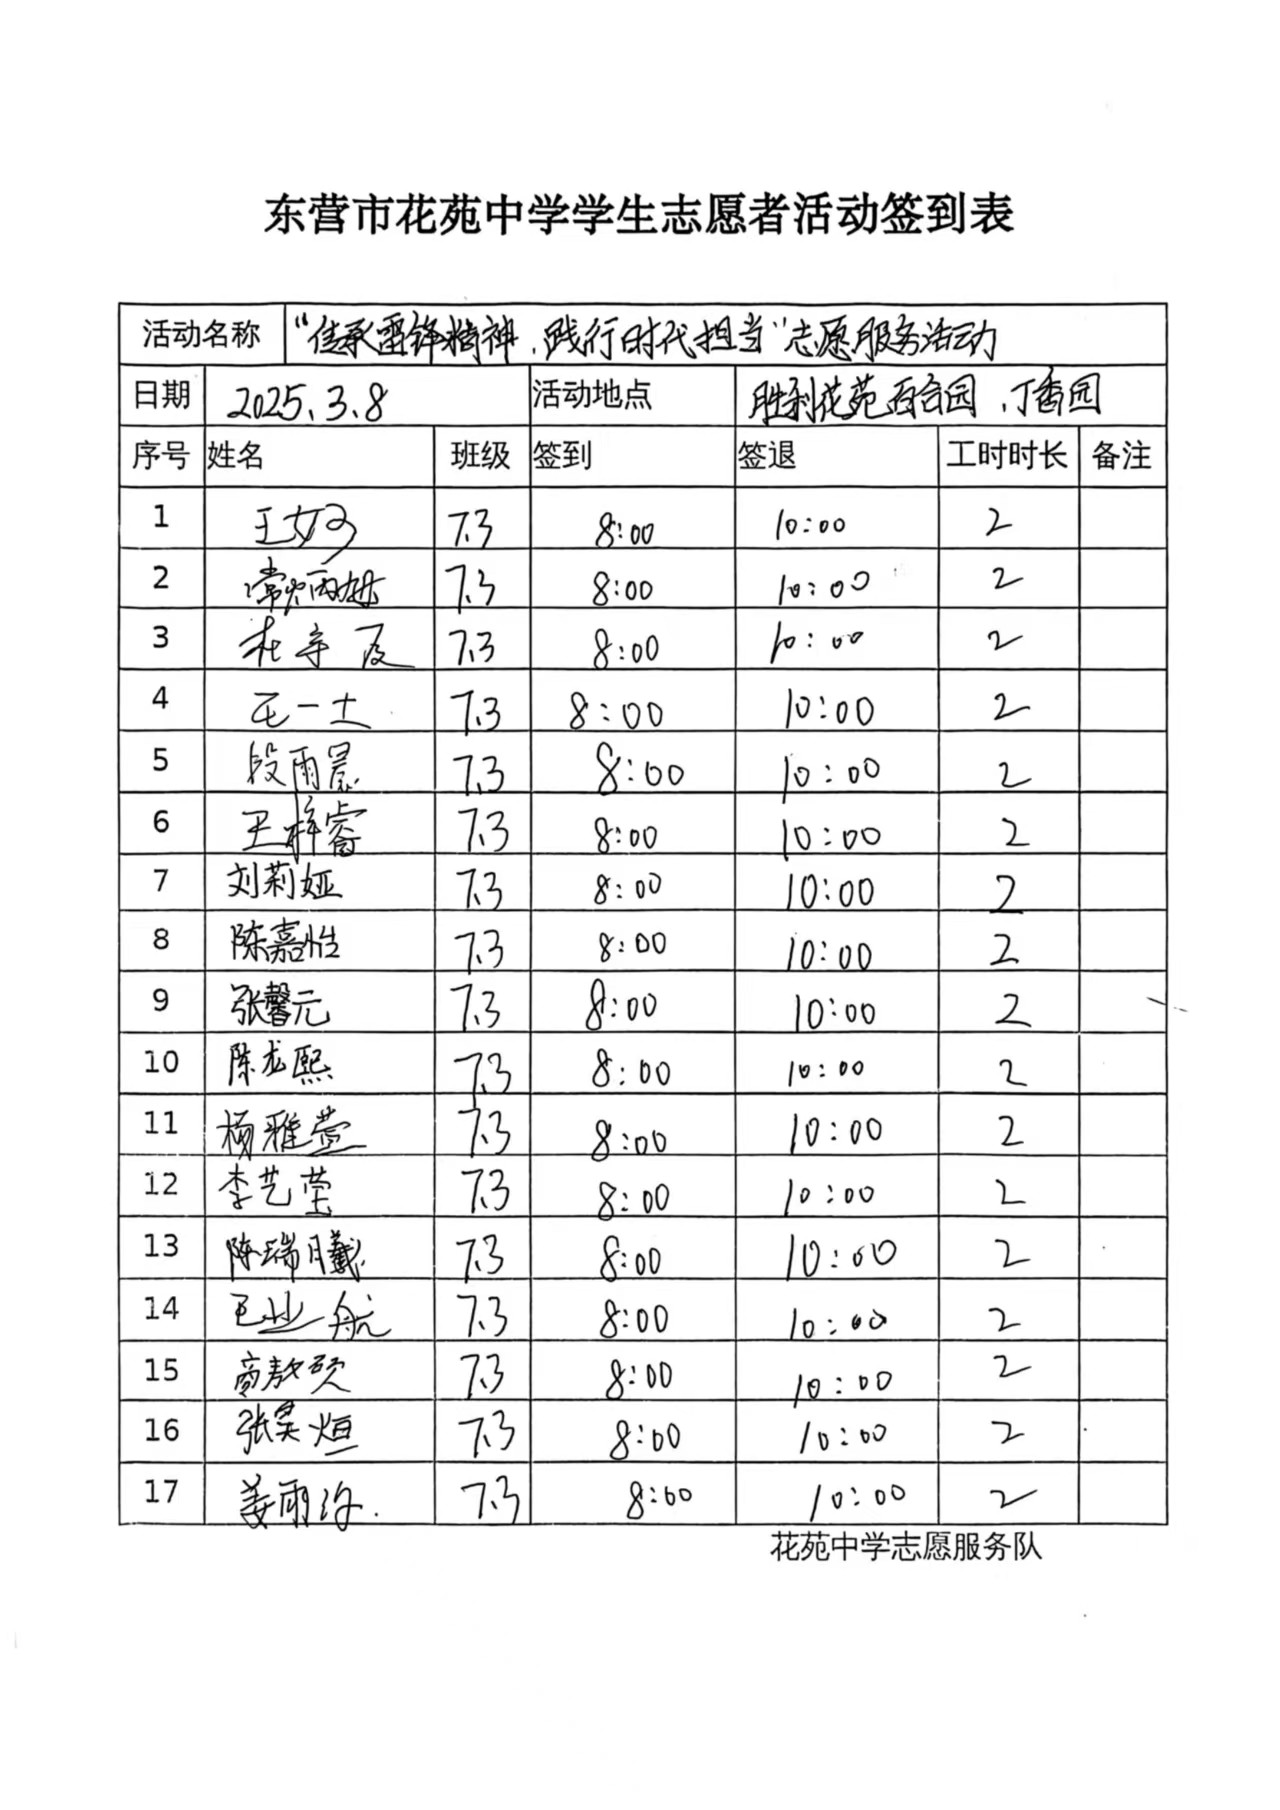 东营市花苑中学学生志愿者活动签到表
活动名称 “传承雷锋精神、践行时代担当”志愿服务活动
日期 2025.3.8 活动地点 胜利花苑百合园、丁香园
序号 姓名 班级 签到 签退 工时时长 备注
1 王好 7.3 8:00 10:00 2
2 常炳姝 7.3 8:00 10:00 2
3 杜宇 7.3 8:00 10:00 2
4 王一士 7.3 8:00 10:00 2
5 段雨晨 7.3 8:00 10:00 2
6 王梓睿 7.3 8:00 10:00 2
7 刘莉娅 7.3 8:00 10:00 2
8 陈嘉怡 7.3 8:00 10:00 2
9 张馨元 7.3 8:00 10:00 2
10 陈龙熙 7.3 8:00 10:00 2
11 杨雅萱 7.3 8:00 10:00 2
12 李艺莹 7.3 8:00 10:00 2
13 陈瑞 7.3 8:00 10:00 2
14 航 7.3 8:00 10:00 2
15 7.3 8:00 10:00 2
16 张昊烜 7.3 8:00 10:00 2
17 姜雨 7.3 8:00 10:00 2
花苑中学志愿服务队